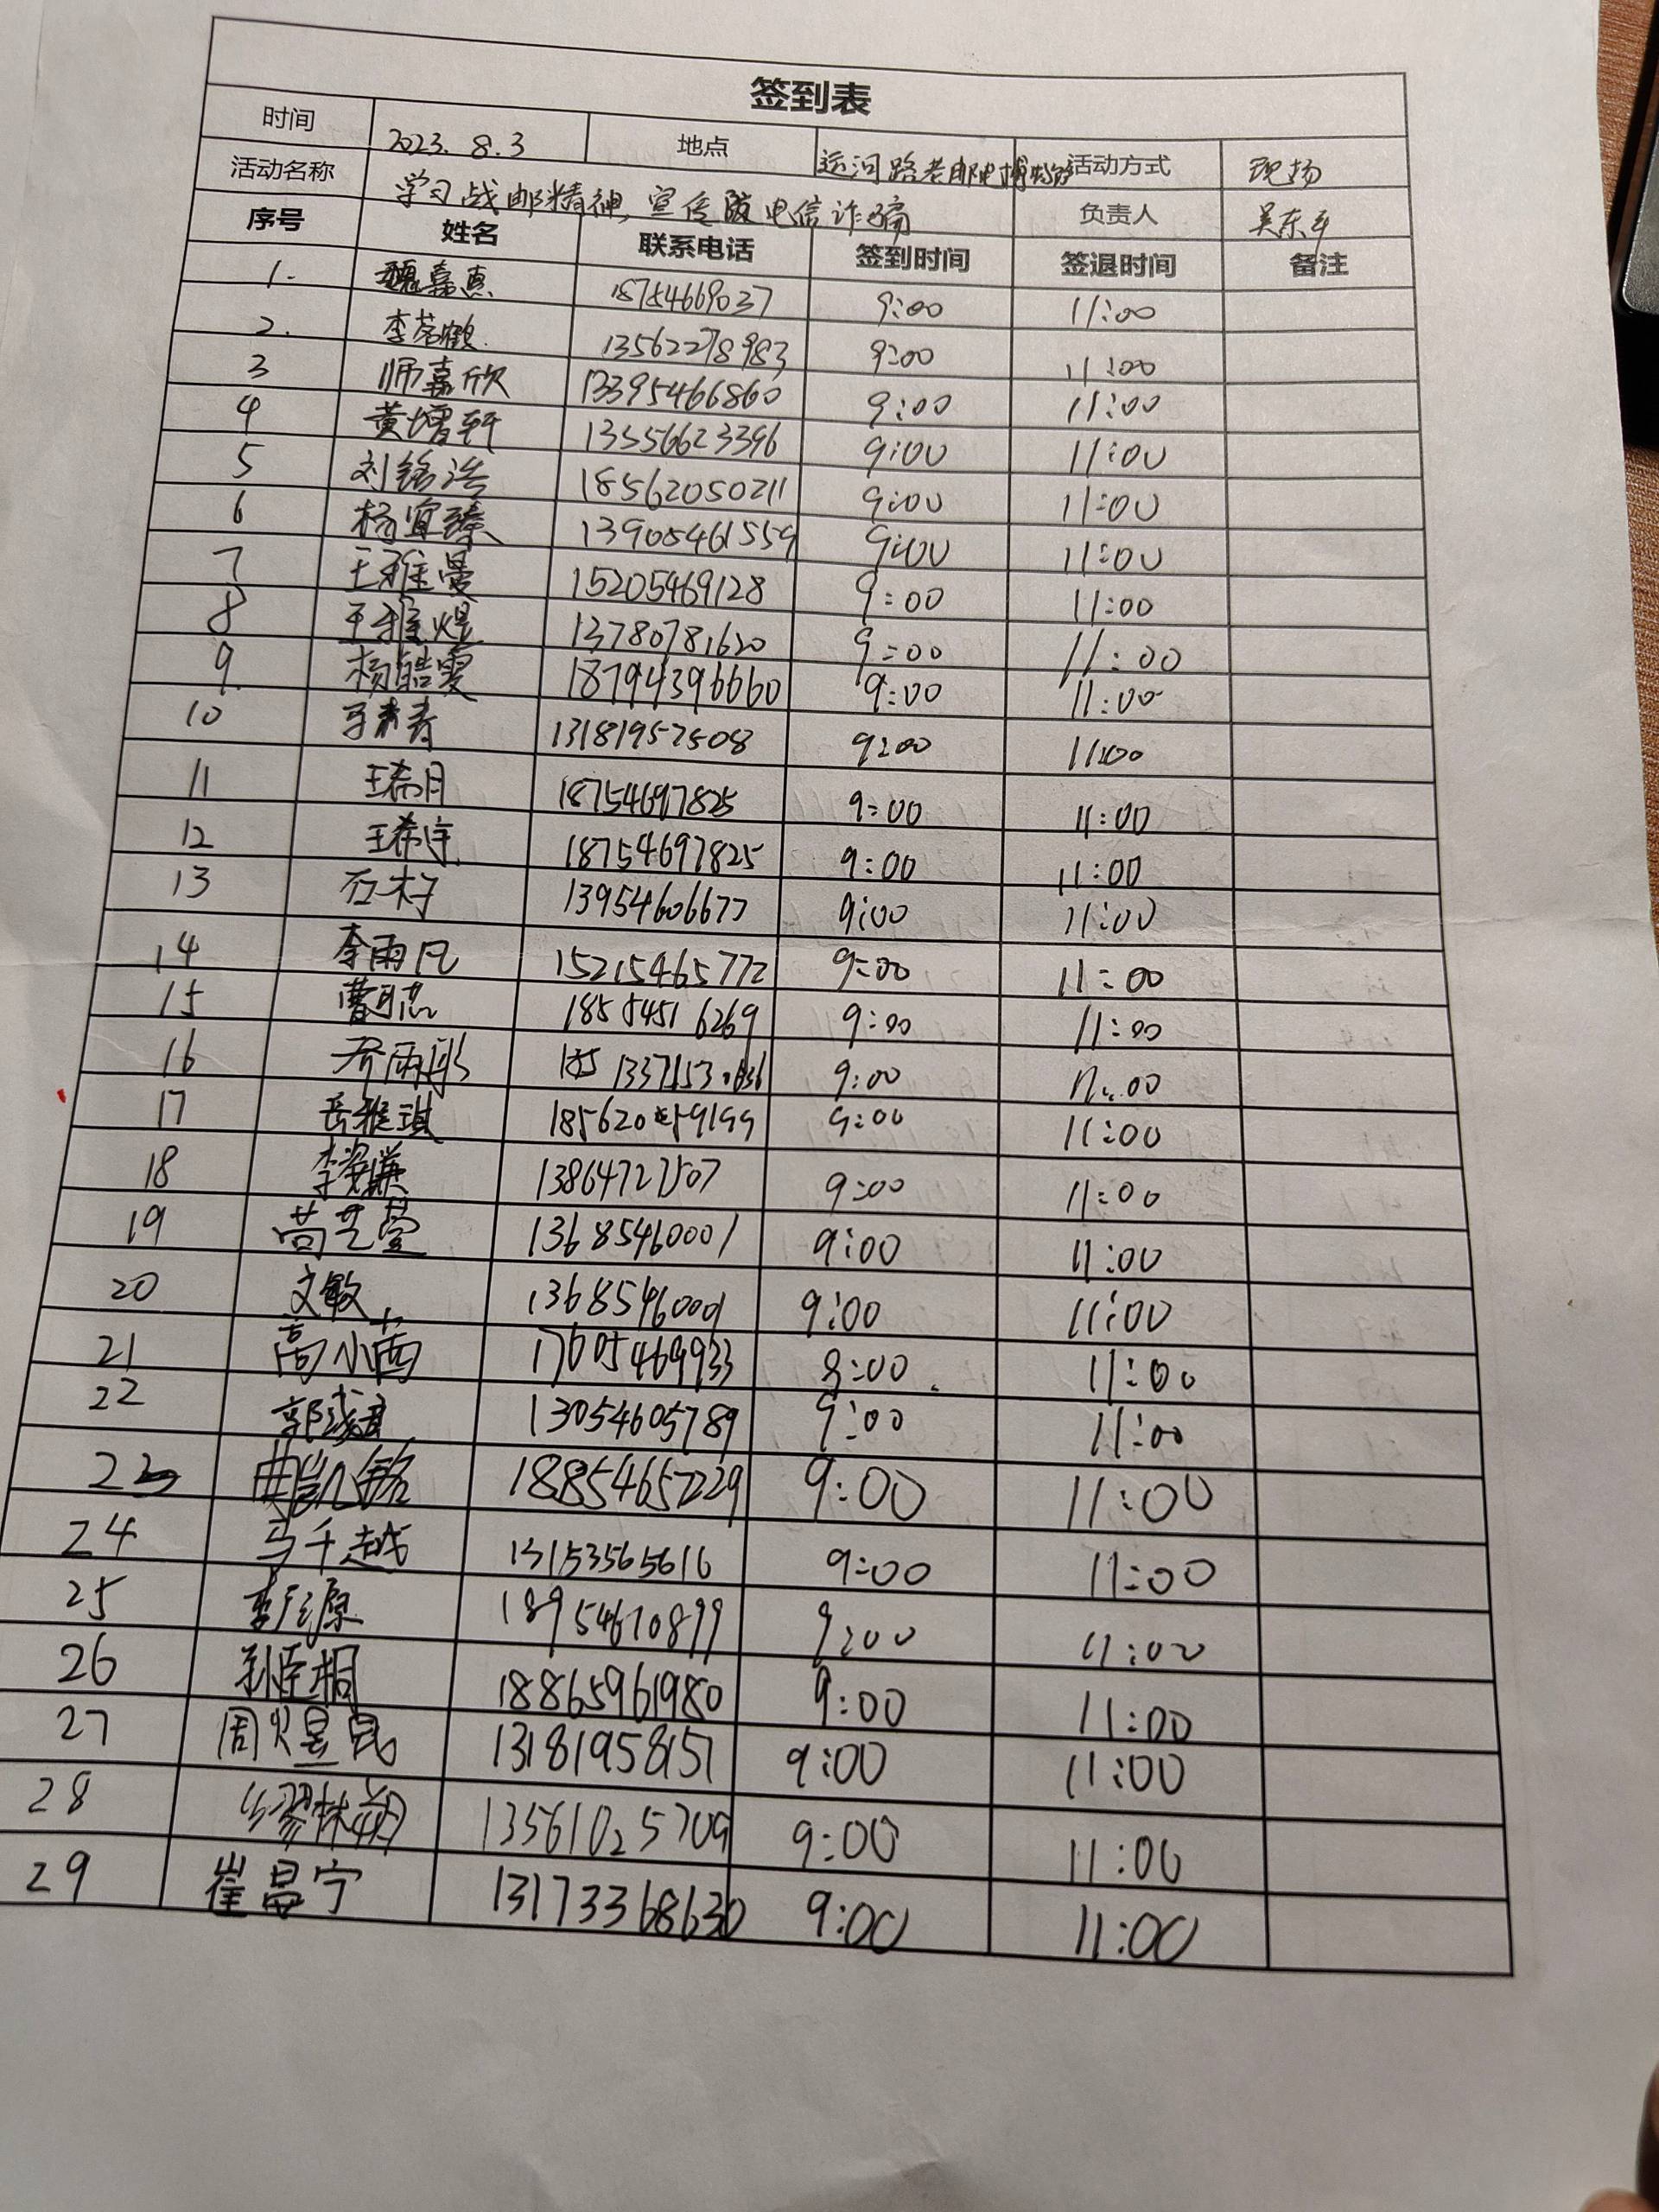 签到表
时间 2023.8.3 地点 运河路老邮电博物馆 活动方式 现场
活动名称 学习战邮精神,宣传 电信诈骗 负责人 吴东平
序号 姓名 联系电话 签到时间 签退时间 备注
1. 魏嘉惠 18754669037 9:00 11:00
2. 李茗鹤 13562278983 9:00 11:00
3 师嘉欣 13395466860 9:00 11:00
4 黄增轩 13356623396 9:00 11:00
5 刘铭浩 18562050211 9:00 11:00
6 杨宜臻 13905461559 9:00 11:00
7 王雅曼 15205469128 9:00 11:00
8 王雅煜 13780781620 9:00 11:00
9 杨皓雯 18794396660 9:00 11:00
10 13181957508 9:00 11:00
11 王希月 18754697825 9:00 11:00
12 王希宇 18754697825 9:00 11:00
13 石梓 13954606677 9:00 11:00
14 李雨凡 15215465772 9:00 11:00
15 18554516269 9:00 11:00
16 乔雨彤 9:00 11:00
17 岳雅琪 9:00 11:00
18 李姿谦 13864727507 9:00 11:00
19 苘芝萱 13685460001 9:00 11:00
20 文敏 13685460001 9:00 11:00
21 高小茜 17605469933 9:00 11:00
22 13054605789 9:00 11:00
23 曲凯铭 18854657229 9:00 11:00
24 马千越 13153565616 9:00 11:00
25 李彦源 18954670899 9:00 11:00
26 孙臣桐 18865961980 9:00 11:00
27 周煜昆 13181958157 9:00 11:00
28 13561025709 9:00 11:00
29 崔昌宁 13173368630 9:00 11:00